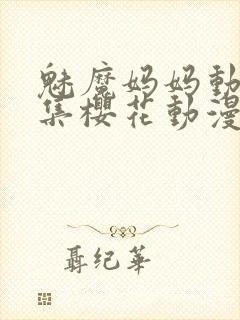 魅魔妈妈動
集櫻花動漫
聶纪華